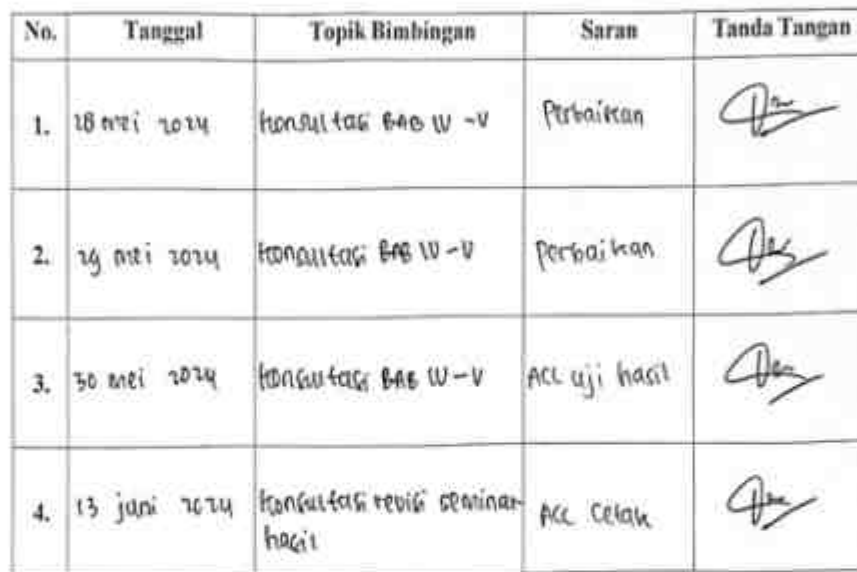 No. Tanggal Topik Bimbingan Saran Tanda Tangan
1. 28 mei 2024 Konsultasi BAB IV - V Perbaikan
2. 29 mei 2024 Konsultasi BAB IV - V Perbaikan
3. 30 mei 2024 Konsultasi BAB IV - V ACC uji hasil
4. 13 juni 2024 Konsultasi revisi seminar ACC Cetak
hasil